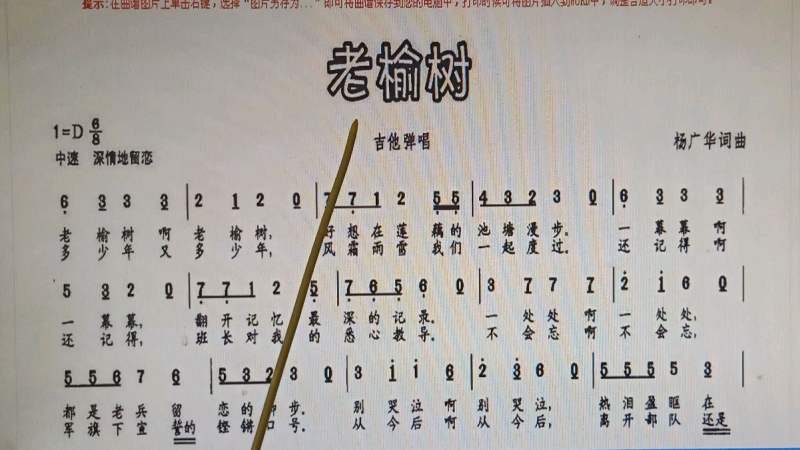 提示：在曲谱图片上单击右键，选择“图片另存为...”即可将曲谱保存到您的电脑中，打印时候可将图片插入到
老榆树
1=D 6/8
吉他弹唱
杨广华词曲
中速 深情地留恋
6 3 3 3 | 2 1 2 0 | 7 7 1 2 5 5 | 4 3 2 3 0 | 6 3 3 3
老榆树啊 老榆树， 好想在莲藕的池塘漫步。 一幕幕啊
多少年又多少年， 风霜雨雷我们一起度过。 还记得啊
5 3 2 0 | 7 7 1 2 5 | 7 6 5 6 0 | 3 7 7 7 | 2 1 6 0
一幕幕， 翻开记忆最深的记录。 一处处啊一处处，
还记得， 班长对我的悉心教导。 不会忘啊不会忘，
5 5 5 6 7 6 | 5 3 2 3 0 | 3 1 1 6 | 2 3 6 0 | 5 5 5 5 3
都是老兵留恋的 步。 别哭泣啊别哭泣， 热泪盈眶在
军旗下宣誓的铿锵口号。 从今后啊从今后， 离开部队还是